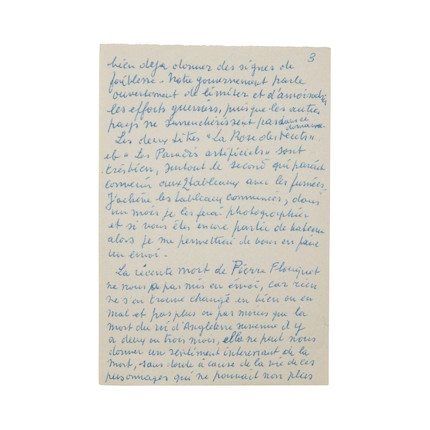 3
bien déjà donner des signes de
faiblesse - Notre gouvernement parle
ouvertement de limiter et d'amoindrir
les efforts guerriers, puisque les autres
pays ne surenchérissent pas dans ce
domaine.
Les deux titres "La Rose des Vents"
et "Les Paradis artificiels" sont
très bien, surtout le second qui paraît
convenir aux tableaux avec les fumées.
J'achève les tableaux commencés, dans
un mois je les ferai photographier
et si vous êtes encore partie de bateau
alors je me permettrai de vous en faire
un envoi.
La récente mort de Pierre Flouquet
ne nous a pas mis en émoi, car rien
ne s'en trouve changé en bien ou en
mal et pas plus ou pas moins que la
mort du roi d'Angleterre survenue il y
a deux ou trois mois, elle ne peut nous
donner un sentiment intéressant de la
mort, sans doute à cause de la vie de ces
personnages qui ne pouvait non plus